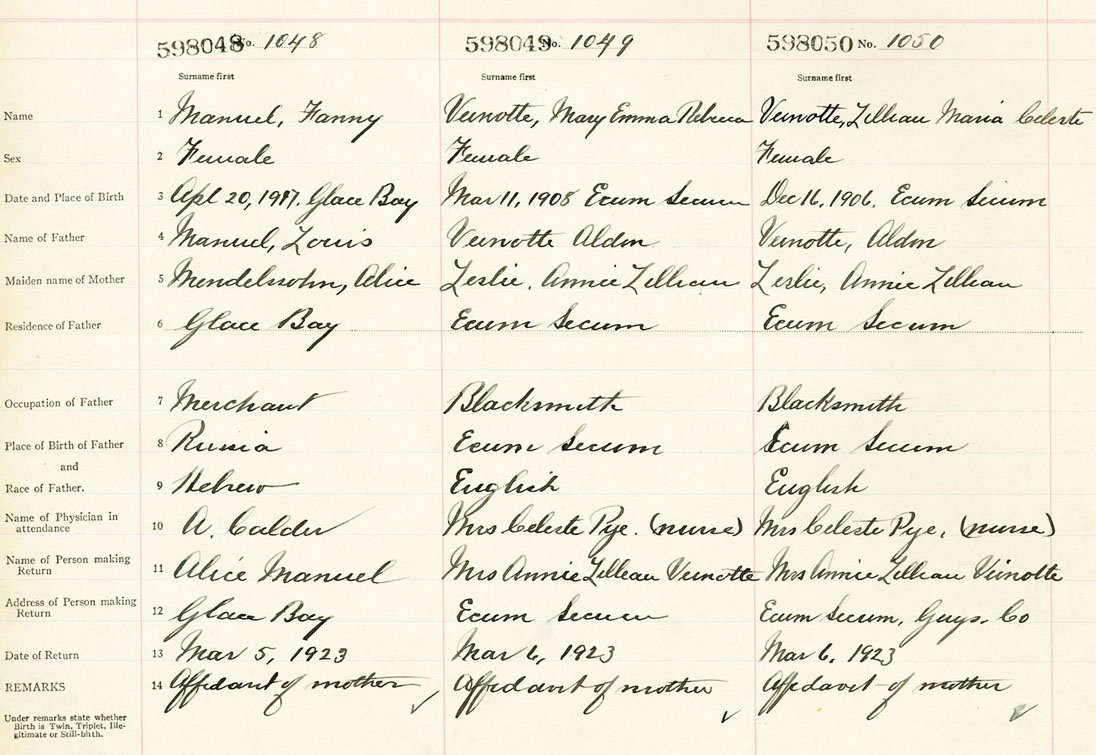 598048 No. 1048 598049 No. 1049 598050 No. 1050
Surname first Surname first Surname first
Name 1 Manuel, Fanny Veinotte, Mary Emma Rebecca Veinotte, Lilleau Maria Celeste
Sex 2 Female Female Female
Date and Place of Birth 3 Apl 20, 1917. Glace Bay Mar 11, 1908 Ecum Secum Dec 16, 1906. Ecum Secum
Name of Father 4 Manuel, Louis Veinotte Aldon Veinotte, Aldon
Maiden name of Mother 5 Mendelssohn, Alice Leslie, Annie Lilleau Leslie, Annie Lilleau
Residence of Father 6 Glace Bay Ecum Secum Ecum Secum
Occupation of Father 7 Merchant Blacksmith Blacksmith
Place of Birth of Father 8 Russia Ecum Secum Ecum Secum
and
Race of Father. 9 Hebrew English English
Name of Physician in
attendance 10 A. Calder Mrs Celeste Pye. (nurse) Mrs Celeste Pye, (nurse)
Name of Person making
Return 11 Alice Manuel Mrs Annie Lilleau Veinotte Mrs Annie Lilleau Veinotte
Address of Person making
Return 12 Glace Bay Ecum Secum Ecum Secum, Guys. Co
Date of Return 13 Mar 5, 1923 Mar 6, 1923 Mar 6, 1923
REMARKS 14 Affidavit of mother Affidavit of mother Affidavit of mother
Under remarks state whether
Birth is Twin, Triplet, Ille-
gitimate or Still-birth.